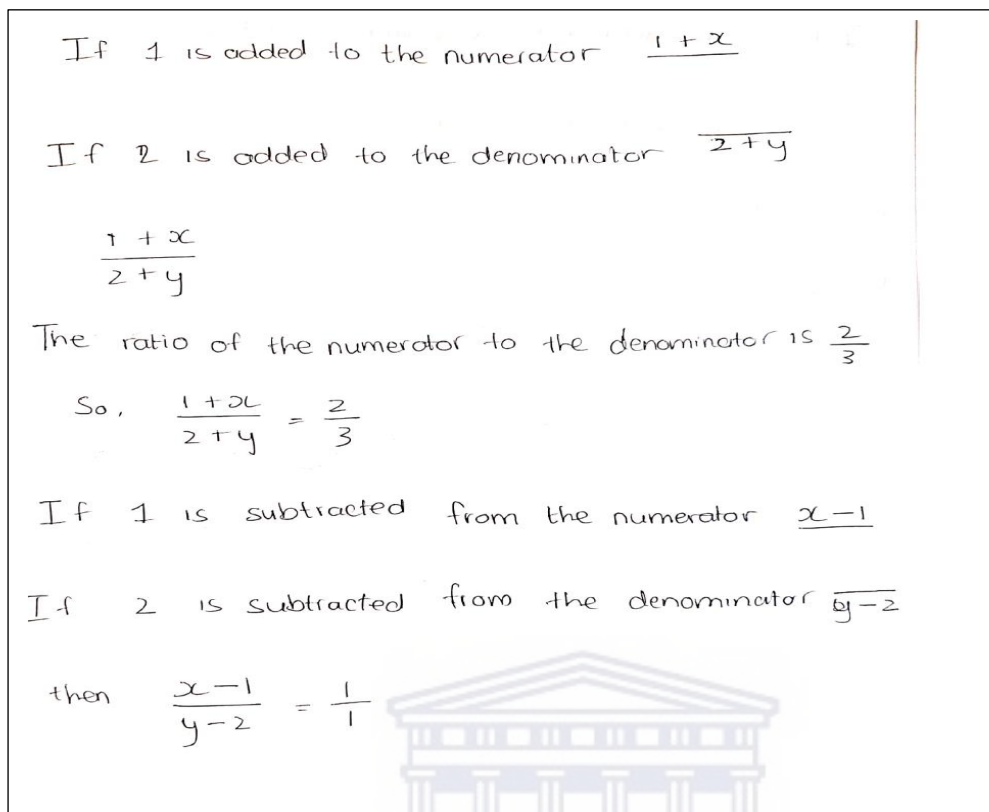 If 1 is added to the numerator 1 + x
If 2 is added to the denominator 2 + y
1 + x
2 + y
The ratio of the numerator to the denominator is 2/3
So, 1 + x / 2 + y = 2/3
If 1 is subtracted from the numerator x - 1
If 2 is subtracted from the denominator y - 2
then x - 1 / y - 2 = 1/1